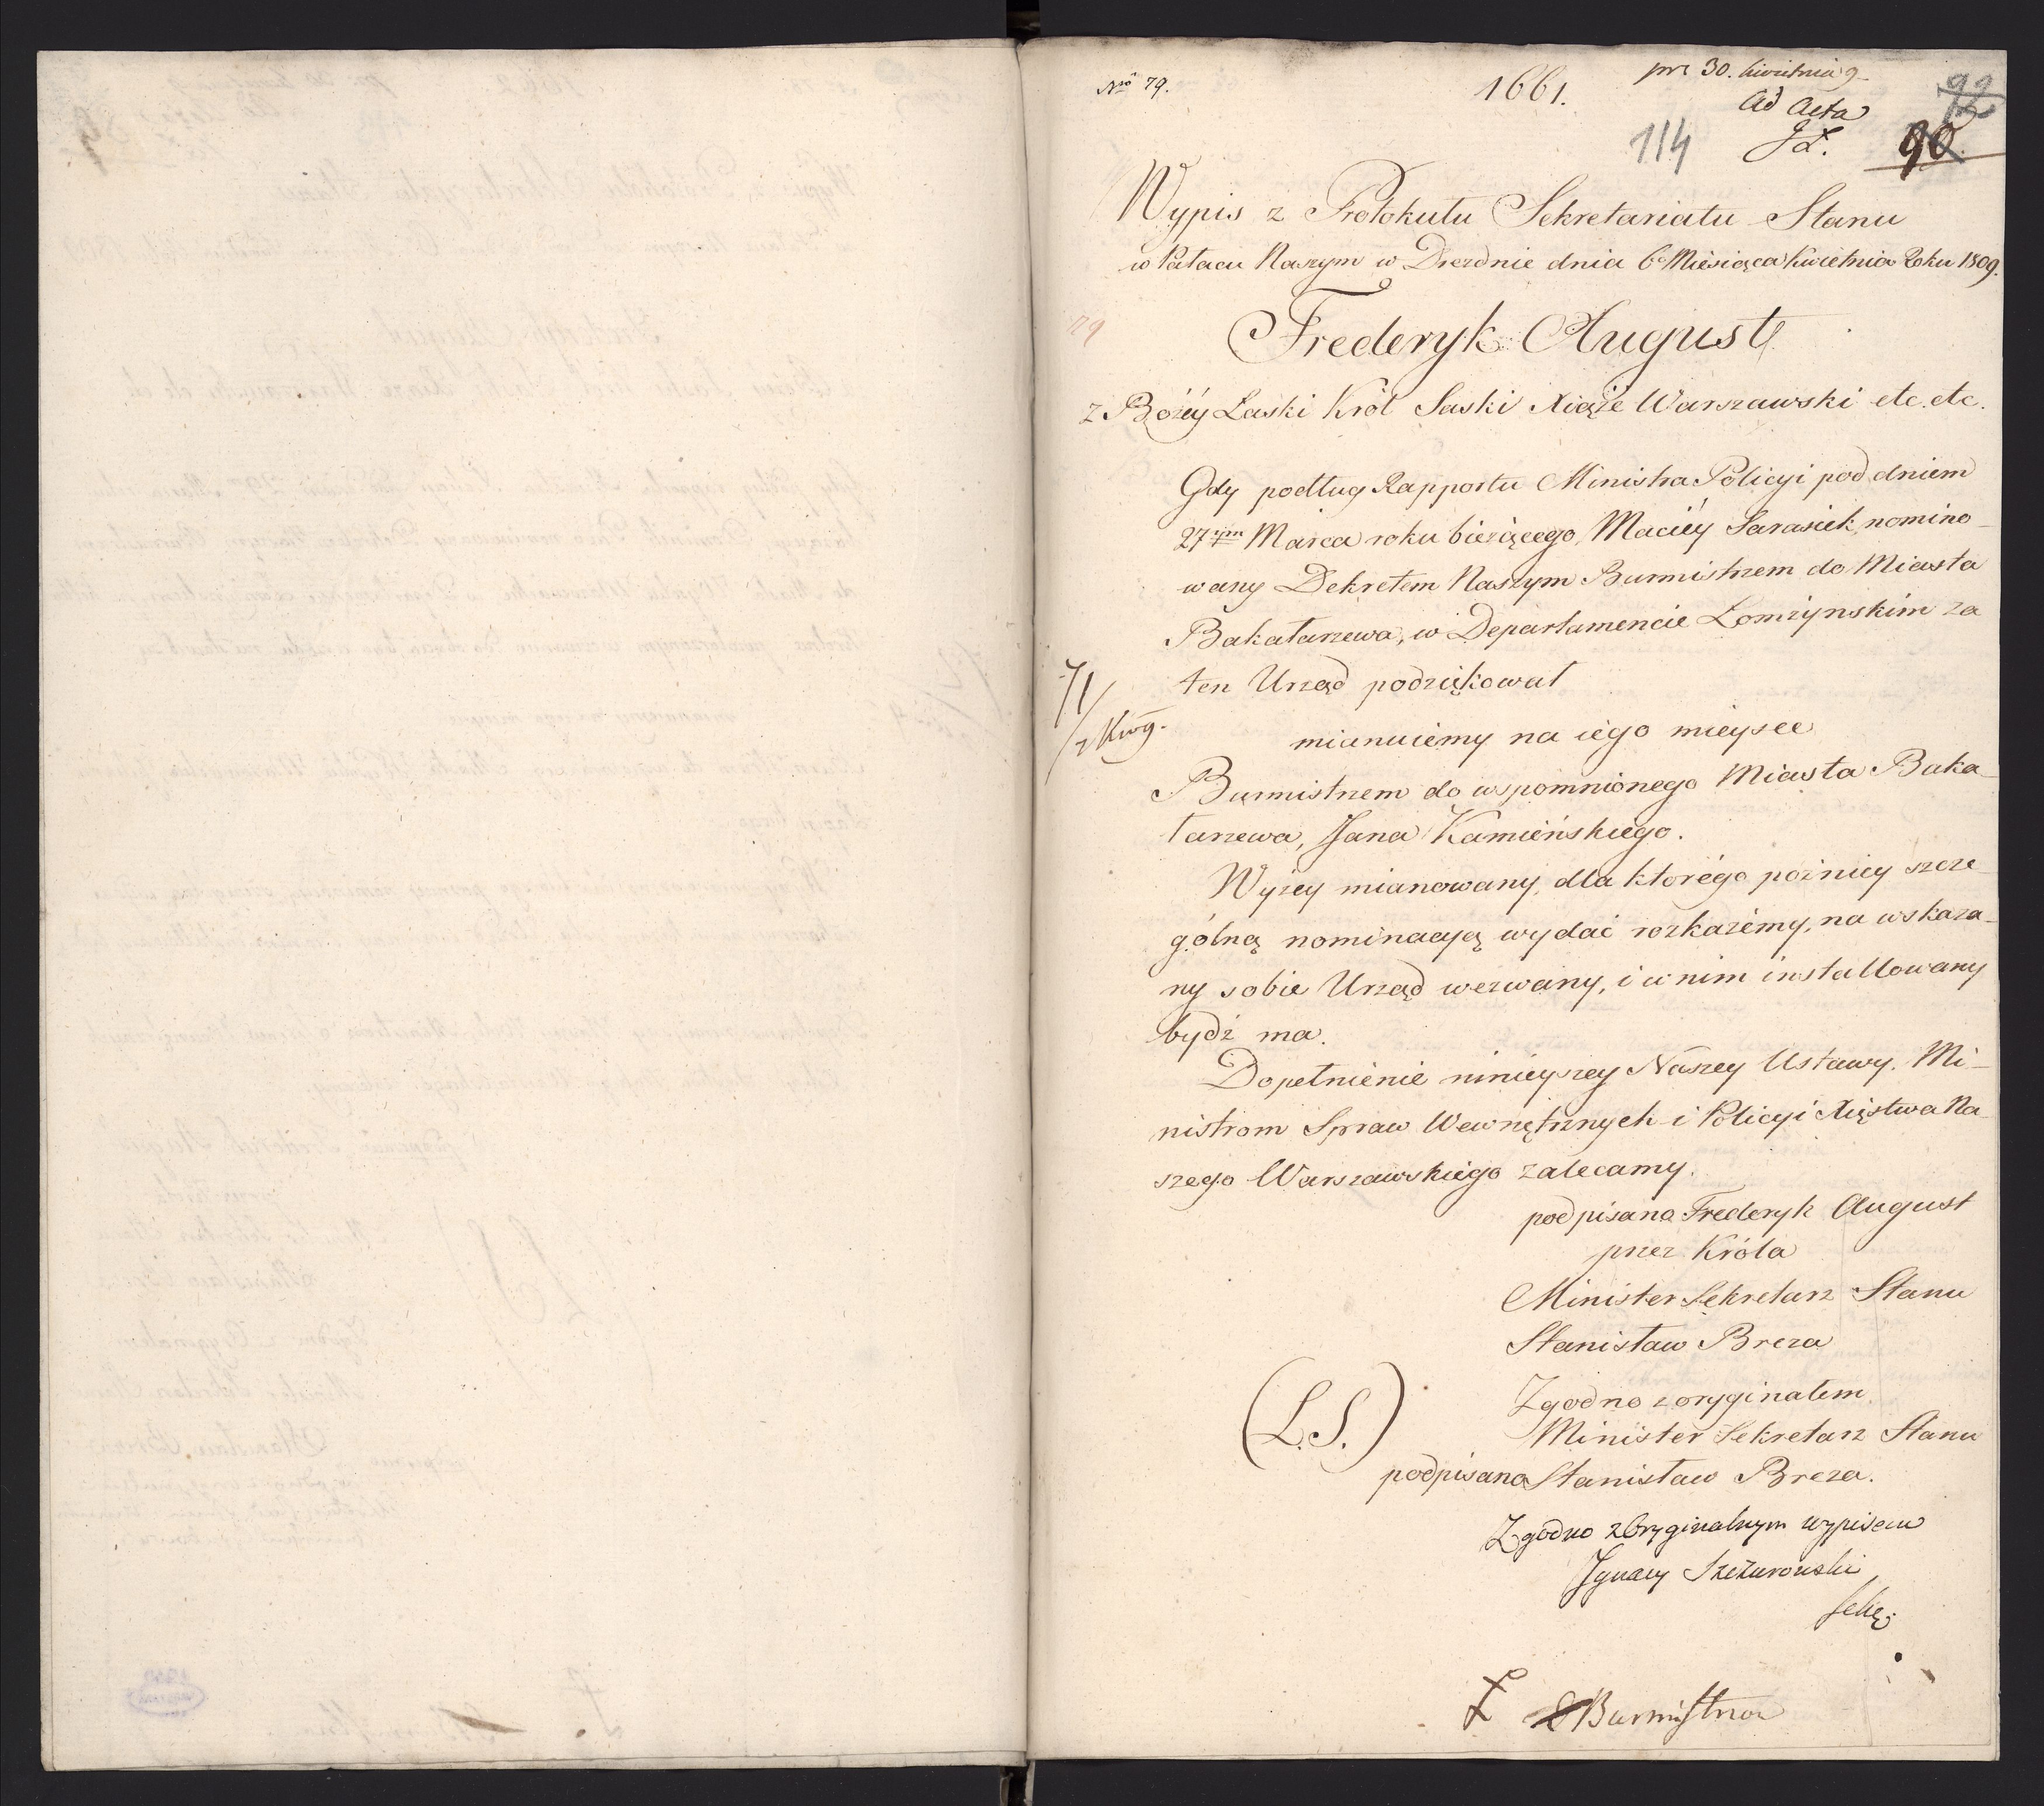 Nro 79.
1661.
pr: 30. kwietnia 9
Ad Acta
114
92
90.
Wypis z Protokułu Sekretariatu Stanu
w Pałacu Naszym w Dreznie dnia 6o Miesiąca Kwietnia Roku 1809.
79
Frederyk August
z Bożéy Łaski Król Saski Xiąże Warszawski etc. etc.
Gdy podług Rapportu Ministra Policyi pod dniem
27ym Marca roku bieżącego, Maciéy Sarasiek, nomino-
wany Dekretem Naszym Burmistrzem do Miasta
Bakałarzewa, w Departamencie Łomżynskim za
ten Urząd podziękował
71
mianuiemy na iego mieysce
Burmistrzem do wspomnionego Miasta Baka-
łarzewa, Jana Kamieńskiego.
Wyżey mianowany, dla którégo pożniey szcze-
gólną nominacyą wydać rozkażemy, na wskaza-
ny sobie Urząd wezwany, i w nim installowany
bydź ma.
Dopełnienie ninieyszey Naszey Ustawy. Mi-
nistrom Spraw Wewnętrznych i Policyi Xięstwa Na
szego Warszawskiego zalecamy.
podpisano Frederyk August
przez Króla
Minister Sekretarz Stanu
Stanisław Breza
(L.S.)
Zgodno z oryginałem
Minister Sekretarz Stanu
podpisano Stanisław Breza.
Zgodno z Oryginalnym wypisem
Ignacy Szczurowski
Burmistrza